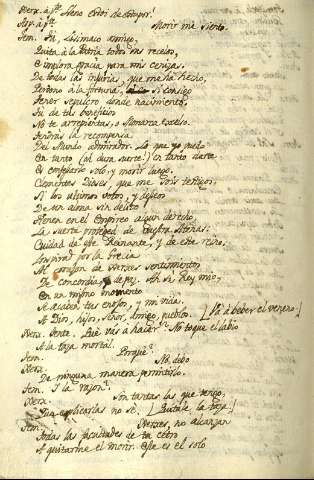 Morir me siento.
Tem. Si, Lisimaco amigo,
Quita à la Patria todos sus recelos,
E implora gracia para mis cenizas.
De todas las injurias, que me ha hecho,
Perdono à la fortuna, si consigo
Tener sepulcro donde nacimiento.
Tu de tus beneficios
No te arrepientas, o Monarca excelso.
Tendras la recompensa
Del Mundo admirador. Lo que yo puedo
En tanto (ai dura suerte!) en tanto darte
Es confesarlo solo, y morir luego.
Clementes Dioses, que me sois testigos,
Si los ultimos votos, y deseos
De un alma sin delito
Tienen en el Empireo algun derecho,
La suerte proteged de vuestra Atenas:
Cuidad de este Reinante, y de este reino.
Inspirad por la Grecia
Al corazon de Xerxes sentimientos
De concordia, y de paz. Ah si Rey mio,
En un mismo momento
Se acaben tus enojos, y mi vida.
A Dios, hijos, Señor, Amigo, pueblos. [Va à beber el veneno.]
Xerx. Tente. Qué vas à hacer? No toque el labio
A la taza mortal.
Tem. Porqué?
Xerx. No, debo
De ninguna manera permitirlo.
Tem. Y la razon?
Xerx. Son tantas las que tengo,
Que explicarlas no sé. [Quitale la taza.]
Tem. Xerxes, no alcanzan
Todas las facultades de tu cetro
A quitarme el morir. Este es el solo